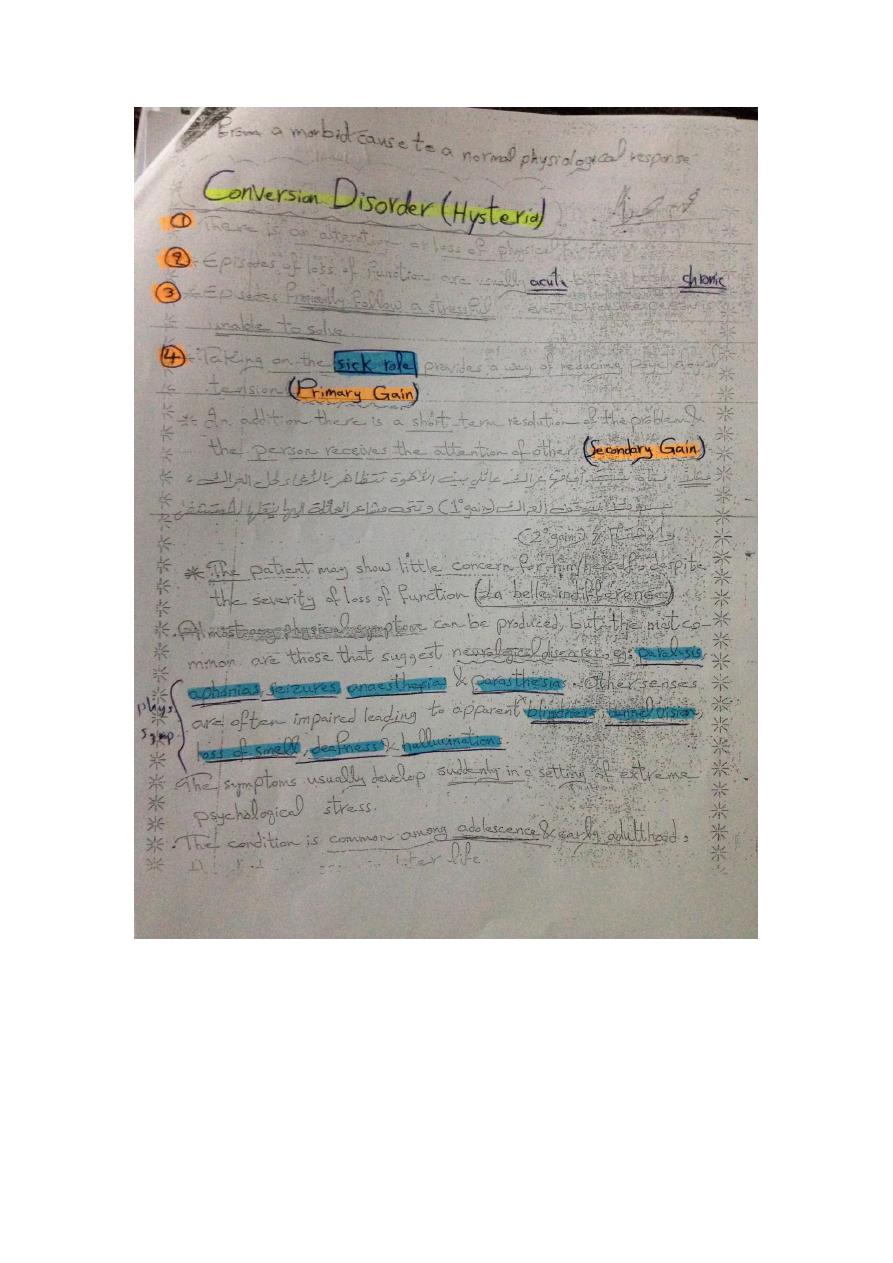 From a morbid cause to a normal physiological response
Conversion Disorder (Hysteria)
① There is an alteration or loss of physical function
② Episodes of loss of function are usually acute but chronic
③ * Episodes frequently follow a stressful event person
unable to solve.
④ * Taking on the sick role provides a way of reducing psychological
tension (Primary Gain)
* In addition there is a short term resolution of the problem &
the person receives the attention of other (Secondary Gain)
عائلي بين الأخوة تتظاهر بالأغماء لحل العراك
العراك (1° gain) العائلة
(2° gain)
* The patient may show little concern for him/herself, despite
the severity of loss of function (La belle indifference)
. Almost any physical symptom can be produced, but the most co-
mmon are those that suggest neurological diseases, eg: paralysis,
aphonias, seizures, anaesthesia & parasthesia. Other senses
phys
symp
are often impaired leading to apparent blindness, tunnel vision,
loss of smell, deafness & hallucinations.
. The symptoms usually develop suddenly in a setting of extreme
psychological stress.
. The condition is common among adolescence & early adulthood,
later life